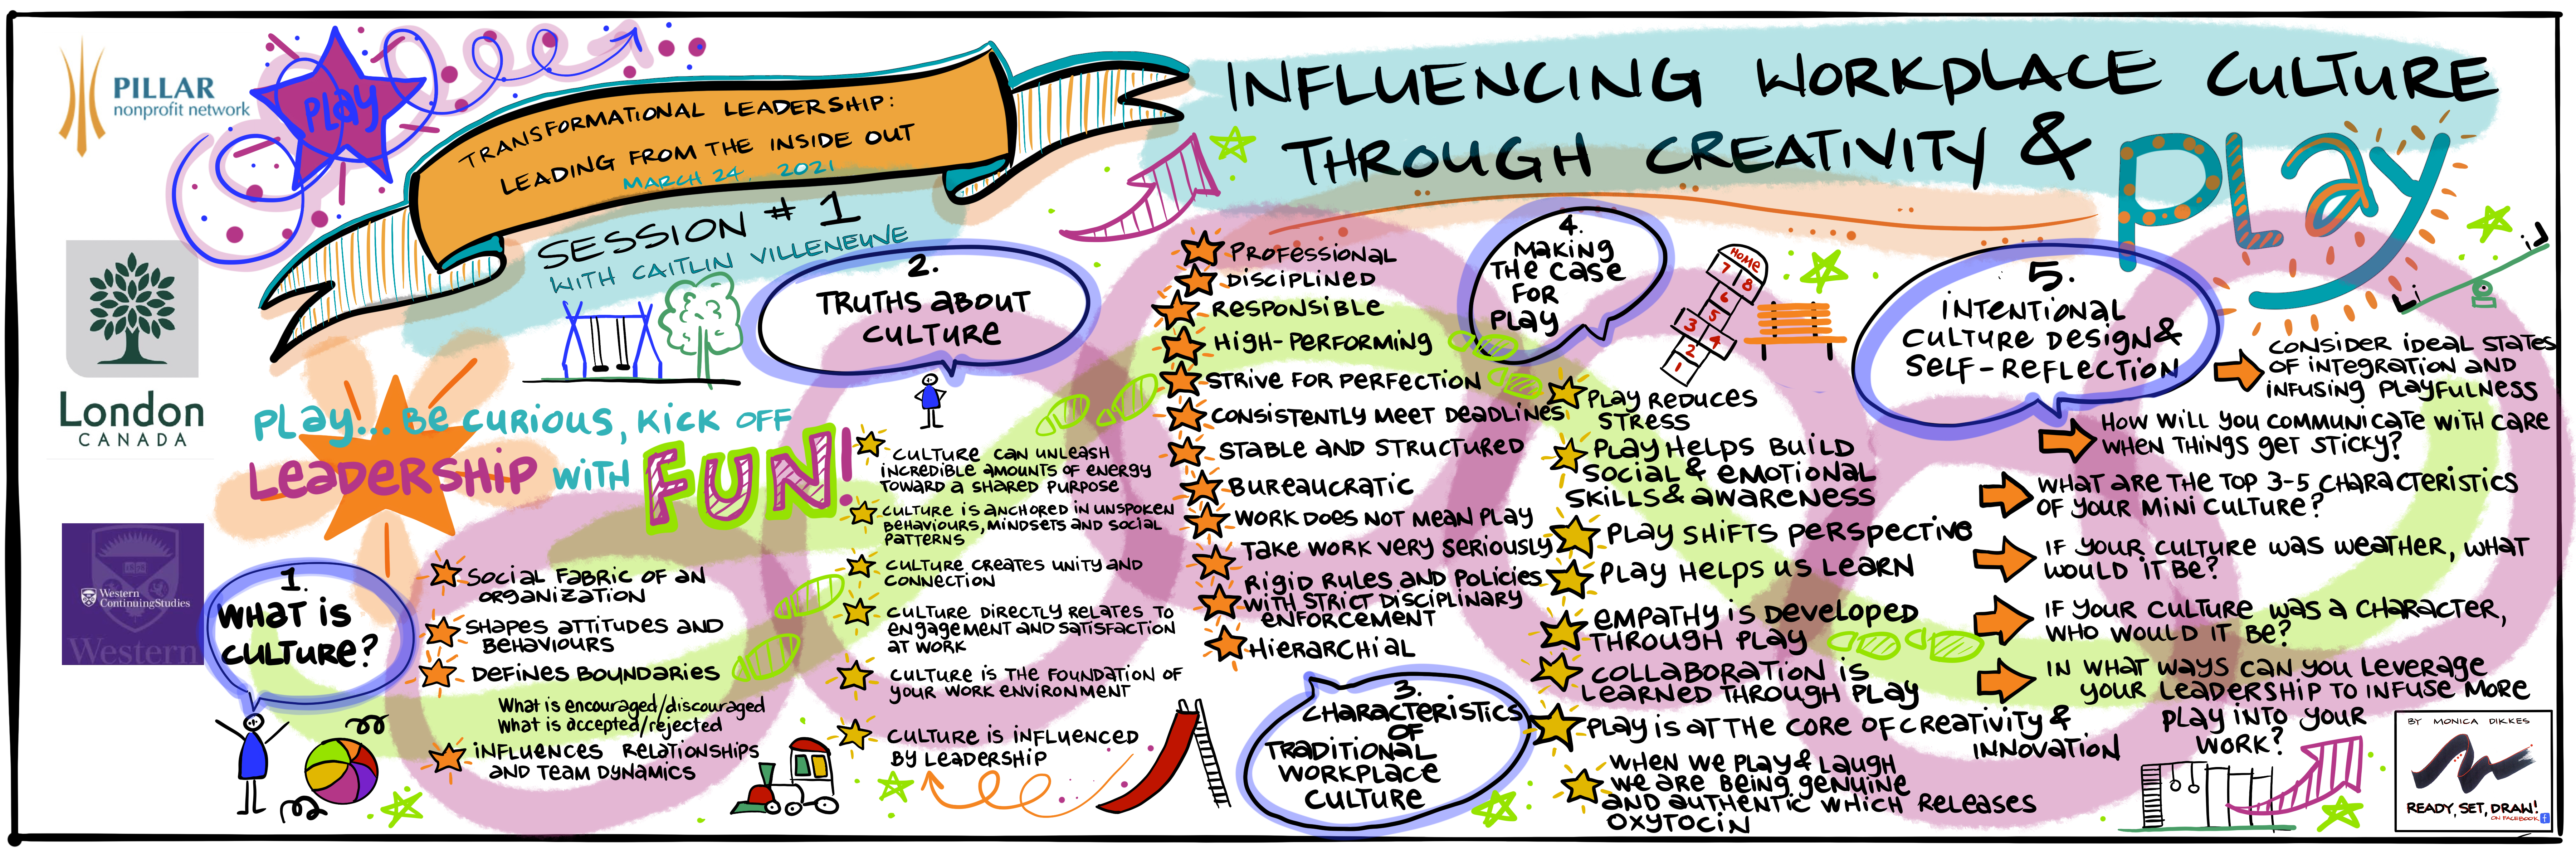 PILLAR
nonprofit network
PLAY
TRANSFORMATIONAL LEADERSHIP:
LEADING FROM THE INSIDE OUT
MARCH 24, 2021
SESSION #1
WITH CAITLIN VILLENEUVE
INFLUENCING WORKPLACE CULTURE
THROUGH CREATIVITY &
PLAY
London
CANADA
Western
ContinuingStudies
Western
PLAY... BE CURIOUS, KICK OFF
LEADERSHIP WITH
FUN!
1.
WHAT IS
CULTURE?
SOCIAL FABRIC OF AN
ORGANIZATION
SHAPES ATTITUDES AND
BEHAVIOURS
DEFINES BOUNDARIES
What is encouraged/discouraged
What is accepted/rejected
INFLUENCES RELATIONSHIPS
AND TEAM DYNAMICS
2.
TRUTHS ABOUT
CULTURE
CULTURE CAN UNLEASH
INCREDIBLE AMOUNTS OF ENERGY
TOWARD A SHARED PURPOSE
CULTURE IS ANCHORED IN UNSPOKEN
BEHAVIOURS, MINDSETS AND SOCIAL
PATTERNS
CULTURE CREATES UNITY AND
CONNECTION
CULTURE DIRECTLY RELATES TO
ENGAGEMENT AND SATISFACTION
AT WORK
CULTURE IS THE FOUNDATION OF
YOUR WORK ENVIRONMENT
CULTURE IS INFLUENCED
BY LEADERSHIP
PROFESSIONAL
DISCIPLINED
RESPONSIBLE
HIGH-PERFORMING
STRIVE FOR PERFECTION
CONSISTENTLY MEET DEADLINES
STABLE AND STRUCTURED
BUREAUCRATIC
WORK DOES NOT MEAN PLAY
TAKE WORK VERY SERIOUSLY
RIGID RULES AND POLICIES
WITH STRICT DISCIPLINARY
ENFORCEMENT
HIERARCHIAL
3.
CHARACTERISTICS
OF
TRADITIONAL
WORKPLACE
CULTURE
4.
MAKING
THE CASE
FOR
PLAY
HOME
7 8
6
5
3 4
2
1
PLAY REDUCES
STRESS
PLAY HELPS BUILD
SOCIAL & EMOTIONAL
SKILLS & AWARENESS
PLAY SHIFTS PERSPECTIVE
PLAY HELPS US LEARN
EMPATHY IS DEVELOPED
THROUGH PLAY
COLLABORATION IS
LEARNED THROUGH PLAY
PLAY IS AT THE CORE OF CREATIVITY &
INNOVATION
WHEN WE PLAY & LAUGH
WE ARE BEING GENUINE
AND AUTHENTIC WHICH RELEASES
OXYTOCIN
5.
INTENTIONAL
CULTURE DESIGN &
SELF-REFLECTION
CONSIDER IDEAL STATES
OF INTEGRATION AND
INFUSING PLAYFULNESS
HOW WILL YOU COMMUNICATE WITH CARE
WHEN THINGS GET STICKY?
WHAT ARE THE TOP 3-5 CHARACTERISTICS
OF YOUR MINI CULTURE?
IF YOUR CULTURE WAS WEATHER, WHAT
WOULD IT BE?
IF YOUR CULTURE WAS A CHARACTER,
WHO WOULD IT BE?
IN WHAT WAYS CAN YOU LEVERAGE
YOUR LEADERSHIP TO INFUSE MORE
PLAY INTO YOUR
WORK?
BY MONICA DIKKES
READY, SET, DRAW!
ON FACEBOOK f